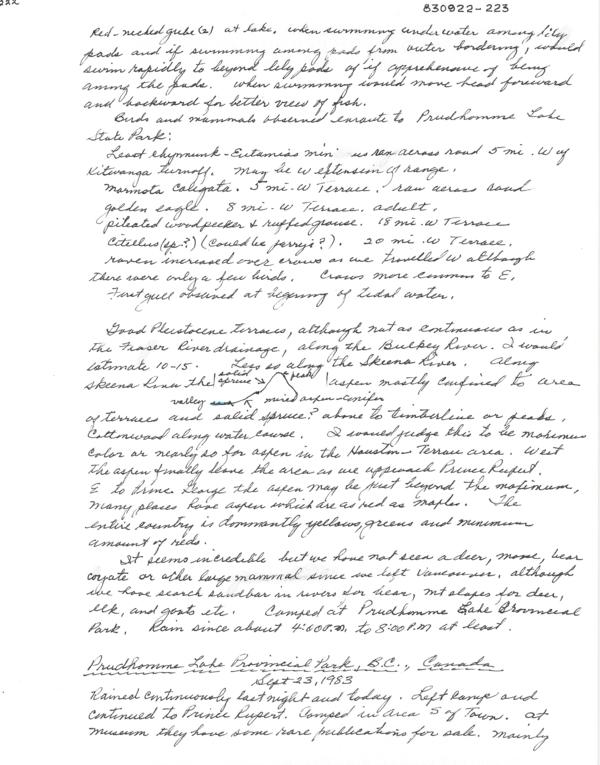 830922-223
Red-necked grebe (2) at lake. when swimming under water among lily
pads and if swimming among pads from outer bordering, would
swim rapidly to beyond lily pads as if apprehensive of being
among the pads. When swimming would move head forward
and backward for better views of fish.
Birds and mammals observed enroute to Prudhomme Lake
State Park:
Least chipmunk - Eutamias minimus ran across road 5 mi. W of
Kitwanga turnoff. May be W extension of range.
Marmota caligata. 5 mi. W Terrace, ran across road
golden eagle. 8 mi. W Terrace. adult.
pileated woodpecker & ruffed grouse. 18 mi. W Terrace
Citellus (sp.?) (Could be parryi?). 20 mi. W Terrace.
raven increased over crows as we travelled W although
there were only a few birds. Crows more common to E.
First gull observed at begining of tidal water.
Good Pleistocene terraces, although not as continuous as in
the Fraser River drainage, along the Bulkley River. I would
estimate 10-15. Less so along the Skeena River. Along
solid peak
Skeena River the spruce aspen mostly confined to area
valley mixed aspen-conifer
of terraces and solid spruce? above to timberline or peaks.
Cottonwood along water course. I would judge this to be maximum
color or nearly so for aspen in the Houston-Terrace area. West
the aspen finally leave the area as we approach Prince Rupert.
E to Prince George the aspen may be just beyond the maximum,
many places have aspen which are as red as maples. The
entire country is dominantly yellows, greens and minimum
amount of reds.
It seems incredible but we have not seen a deer, moose, bear
coyote or other large mammal since we left Vancouver, although
we have search sandbar in rivers for bear, mt slopes for deer,
elk, and goats etc. Camped at Prudhomme Lake Provincial
Park. Rain since about 4:60 P.M. to 8:00 P.M at least.
Prudhomme Lake Provincial Park, B.C., Canada
Sept 23, 1983
Rained continuously last night and today. Left camp and
continued to Prince Rupert. Camped in area S of Town. At
museum they have some rare publications for sale. Mainly